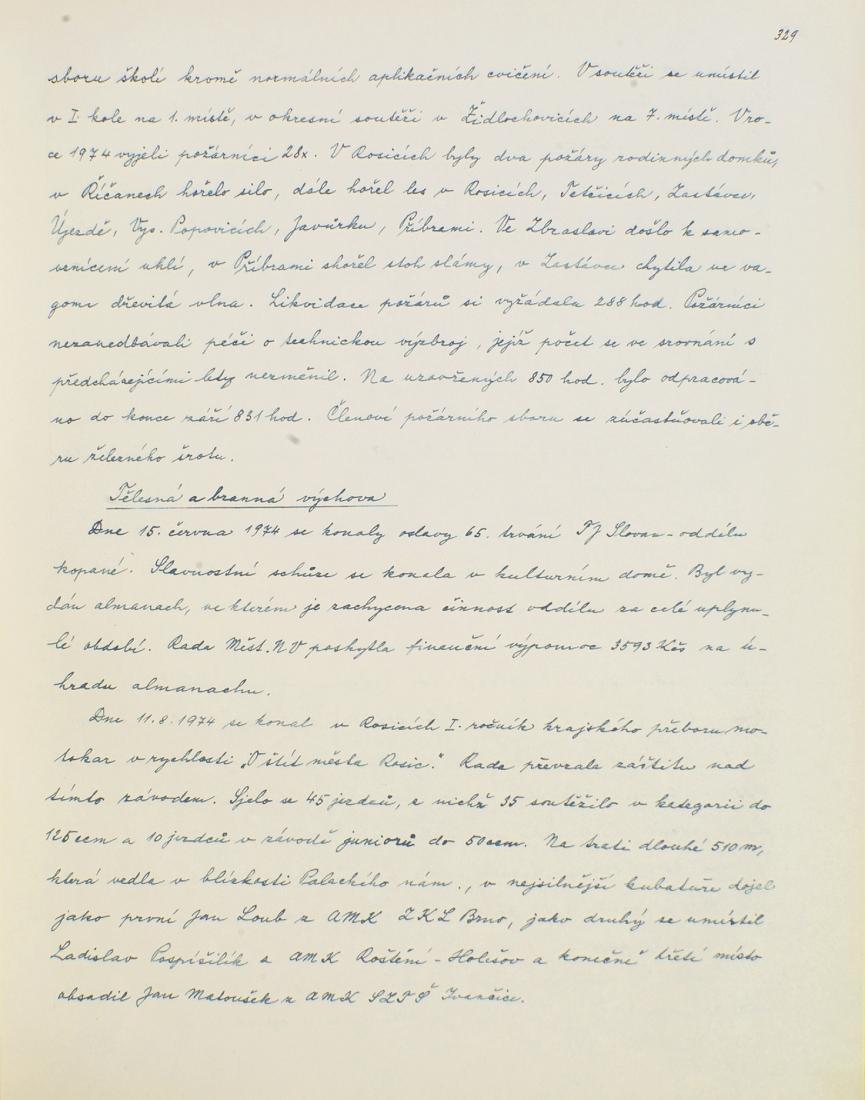 329
sboru školí kromě normálních aplikačních cvičení. V soutěži se umístil
v I. kole na 1. místě, v okresní soutěži v Židlochovicích na 7. místě. V ro-
ce 1974 vyjeli požárníci 28x. V Rosicích byly dva požáry rodinných domků,
v Říčanech hořelo silo, dále hořel les v Rosicích, Tetčicích, Zastávce,
Újezdě, Vys. Popovicích, Javůrku, Příbrami. Ve Zbraslavi došlo k samo-
vznícení uhlí, v Příbrami shořel stoh slámy, v Zastávce chytila ve va-
gonu dřevitá vlna. Likvidace požárů si vyžádala 288 hod. Požárníci
nezanedbávali péči o technickou výzbroj, jejíž počet se ve srovnání s
předcházejícími lety nezměnil. Na uzavřených 850 hod. bylo odpracová-
no do konce září 831 hod. Členové požárního sboru se zúčastňovali i sbě-
ru železného šrotu.
Tělesná a branná výchova
Dne 15. června 1974 se konaly oslavy 65. trvání TJ Slovan - oddílu
kopané. Slavnostní schůze se konala v kulturním domě. Byl vy-
dán almanach, ve kterém je zachycena činnost oddílu za celé uplynu-
lé období. Rada Měst. NV poskytla finanční výpomoc 3593 Kčs na ú-
hradu almanachu.
Dne 11.8.1974 se konal v Rosicích I. ročník krajského přeboru mo-
tokár v rychlosti "O štít města Rosic." Rada převzala záštitu nad
tímto závodem. Sjelo se 45 jezdců, z nichž 35 soutěžilo v kategorii do
125ccm a 10 jezdců v závodě juniorů do 50ccm. Na trati dlouhé 510 m,
která vedla v blízkosti Palackého nám., v nejsilnější kubatuře dojel
jako první Jan Loub z AMK ZKL Brno, jako druhý se umístil
Ladislav Pospíšilík z AMK Roštění - Holešov a konečně třetí místo
obsadil Jan Matoušek z AMK SZTŠ Ivančice.